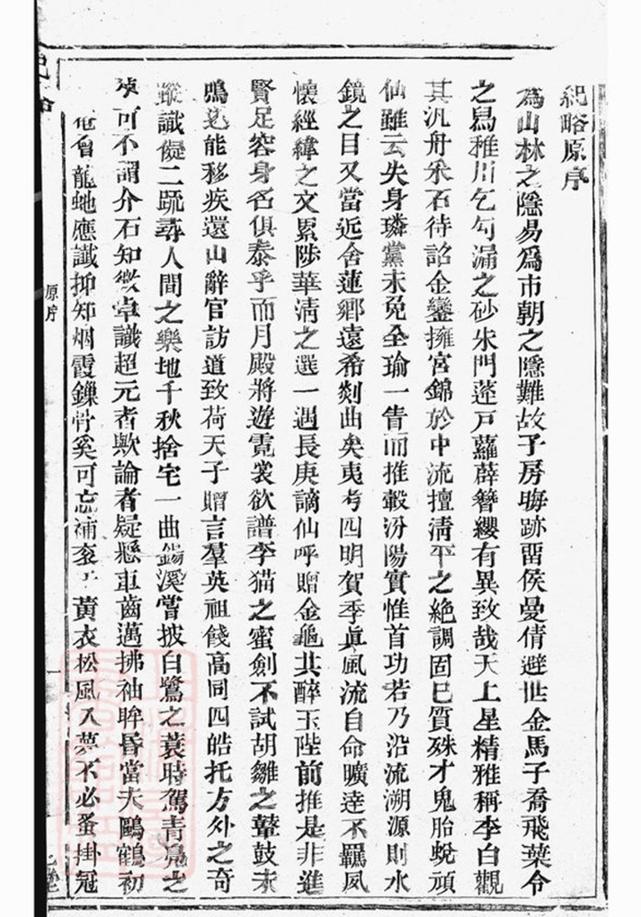 紀略原序
為山林之隱易爲市朝之隱難故子房晦跡畱侯曼倩避世金馬子喬飛葉令
之舃稚川乞勾漏之砂朱門蓬戸蘿薜簪纓有異致哉天上星精雅稱李白觀
其汎舟釆石待詔金鑾擁宮錦於中流擅清平之絶調固已質殊才鬼胎蛻頑
仙雖云失身璘黨未免全瑜一眚而推轂汾陽實惟首功若乃沿流溯源則水
鏡之目又當近舍蓮鄉遠希剡曲矣夷考四明賀季眞風流自命曠達不羈夙
懷經緯之文累陟華清之選一遇長庚謫仙呼贈金龜共醉玉陛前推是非進
賢足容身名俱泰乎而月殿將遊霓裳欲譜李猫之蜜劍不試胡雛之鼙鼓未
鳴乃能移疾還山辭官訪道致荷天子贈言羣英祖餞高同四皓托方外之奇
蹤識儗二疏尋人間之樂地千秋捨宅一曲錫溪嘗披白鷺之蓑時駕青鳬之
可不謂介石知微卓識超元者歟論者疑懸車齒邁拂袖眸昏當夫鷗鶴初
龍虵應讖抑知烟霞鏁骨奚可忘補袞 黃衣松風入夢不必蚤掛冠
原序